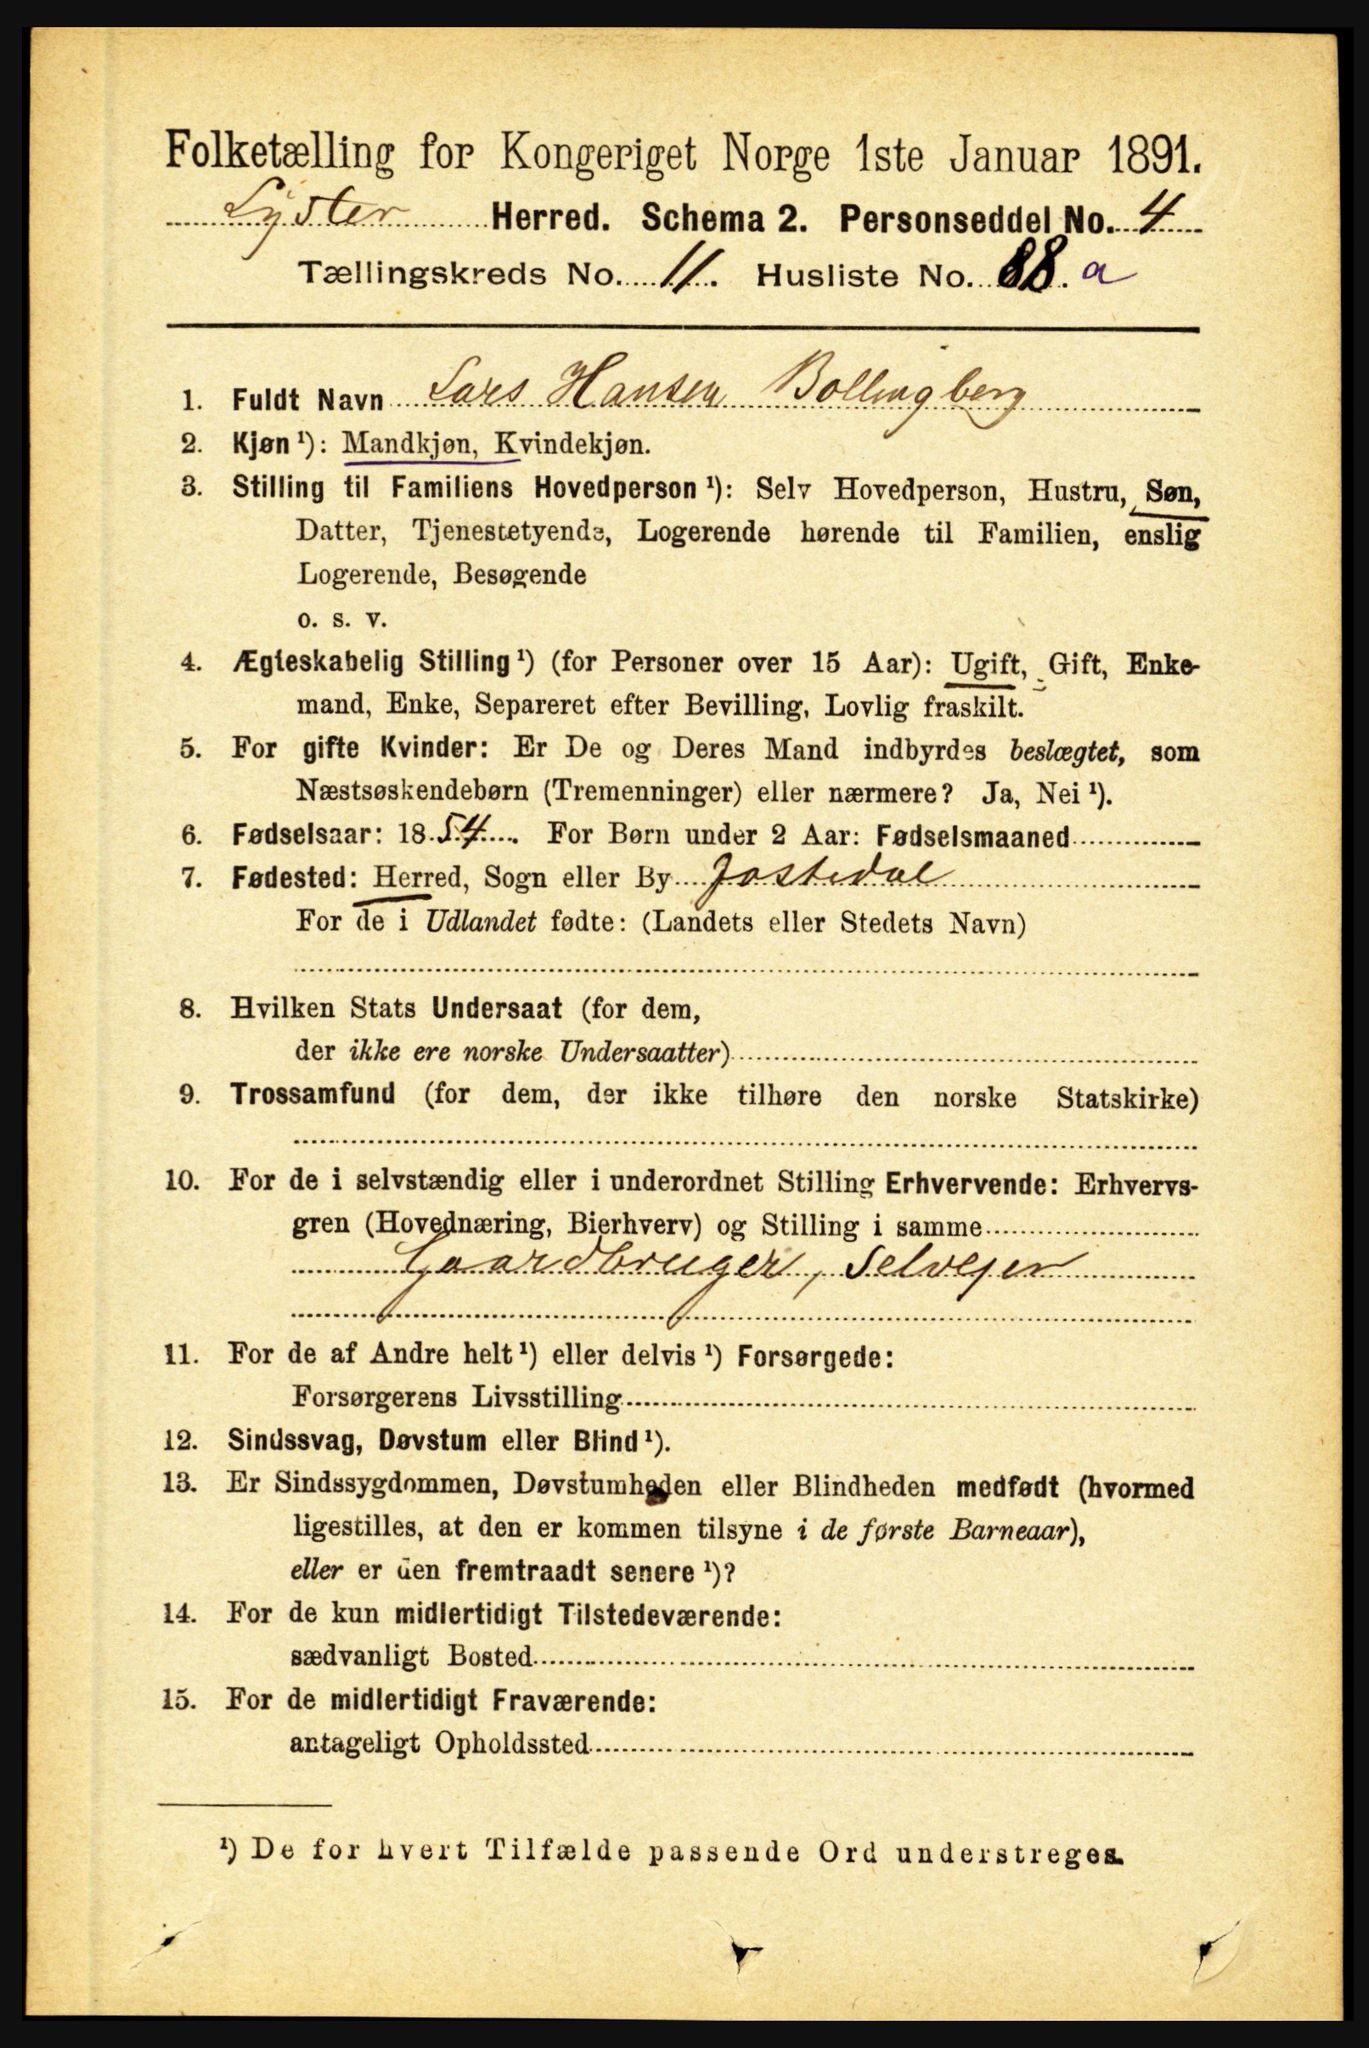 Folketælling for Kongeriget Norge 1ste Januar 1891.
Lyster Herred. Schema 2. Personseddel No. 4
Tællingskreds No. 11. Husliste No. 88. a
1. Fuldt Navn Lars Hansen Bollingberg
2. Kjøn ¹): Mandkjøn, Kvindekjøn.
3. Stilling til Familiens Hovedperson ¹): Selv Hovedperson, Hustru, Søn,
Datter, Tjenestetyende, Logerende hørende til Familien, enslig
Logerende, Besøgende
o. s. v.
4. Ægteskabelig Stilling ¹) (for Personer over 15 Aar): Ugift, Gift, Enke-
mand, Enke, Separeret efter Bevilling, Lovlig fraskilt.
5. For gifte Kvinder: Er De og Deres Mand indbyrdes beslægtet, som
Næstsøskendebørn (Tremenninger) eller nærmere? Ja, Nei ¹).
6. Fødselsaar: 1854. For Børn under 2 Aar: Fødselsmaaned
7. Fødested: Herred, Sogn eller By Jostedal
For de i Udlandet fødte: (Landets eller Stedets Navn)
8. Hvilken Stats Undersaat (for dem,
der ikke ere norske Undersaatter)
9. Trossamfund (for dem, der ikke tilhøre den norske Statskirke)
10. For de i selvstændig eller i underordnet Stilling Erhvervende: Erhvervs-
gren (Hovednæring, Bierhverv) og Stilling i samme
Gaardbruger, Selvejer
11. For de af Andre helt ¹) eller delvis ¹) Forsørgede:
Forsørgerens Livsstilling
12. Sindssvag, Døvstum eller Blind ¹).
13. Er Sindssygdommen, Døvstumheden eller Blindheden medfødt (hvormed
ligestilles, at den er kommen tilsyne i de første Barneaar),
eller er den fremtraadt senere ¹)?
14. For de kun midlertidigt Tilstedeværende:
sædvanligt Bosted
15. For de midlertidigt Fraværende:
antageligt Opholdssted
¹) De for hvert Tilfælde passende Ord understreges.